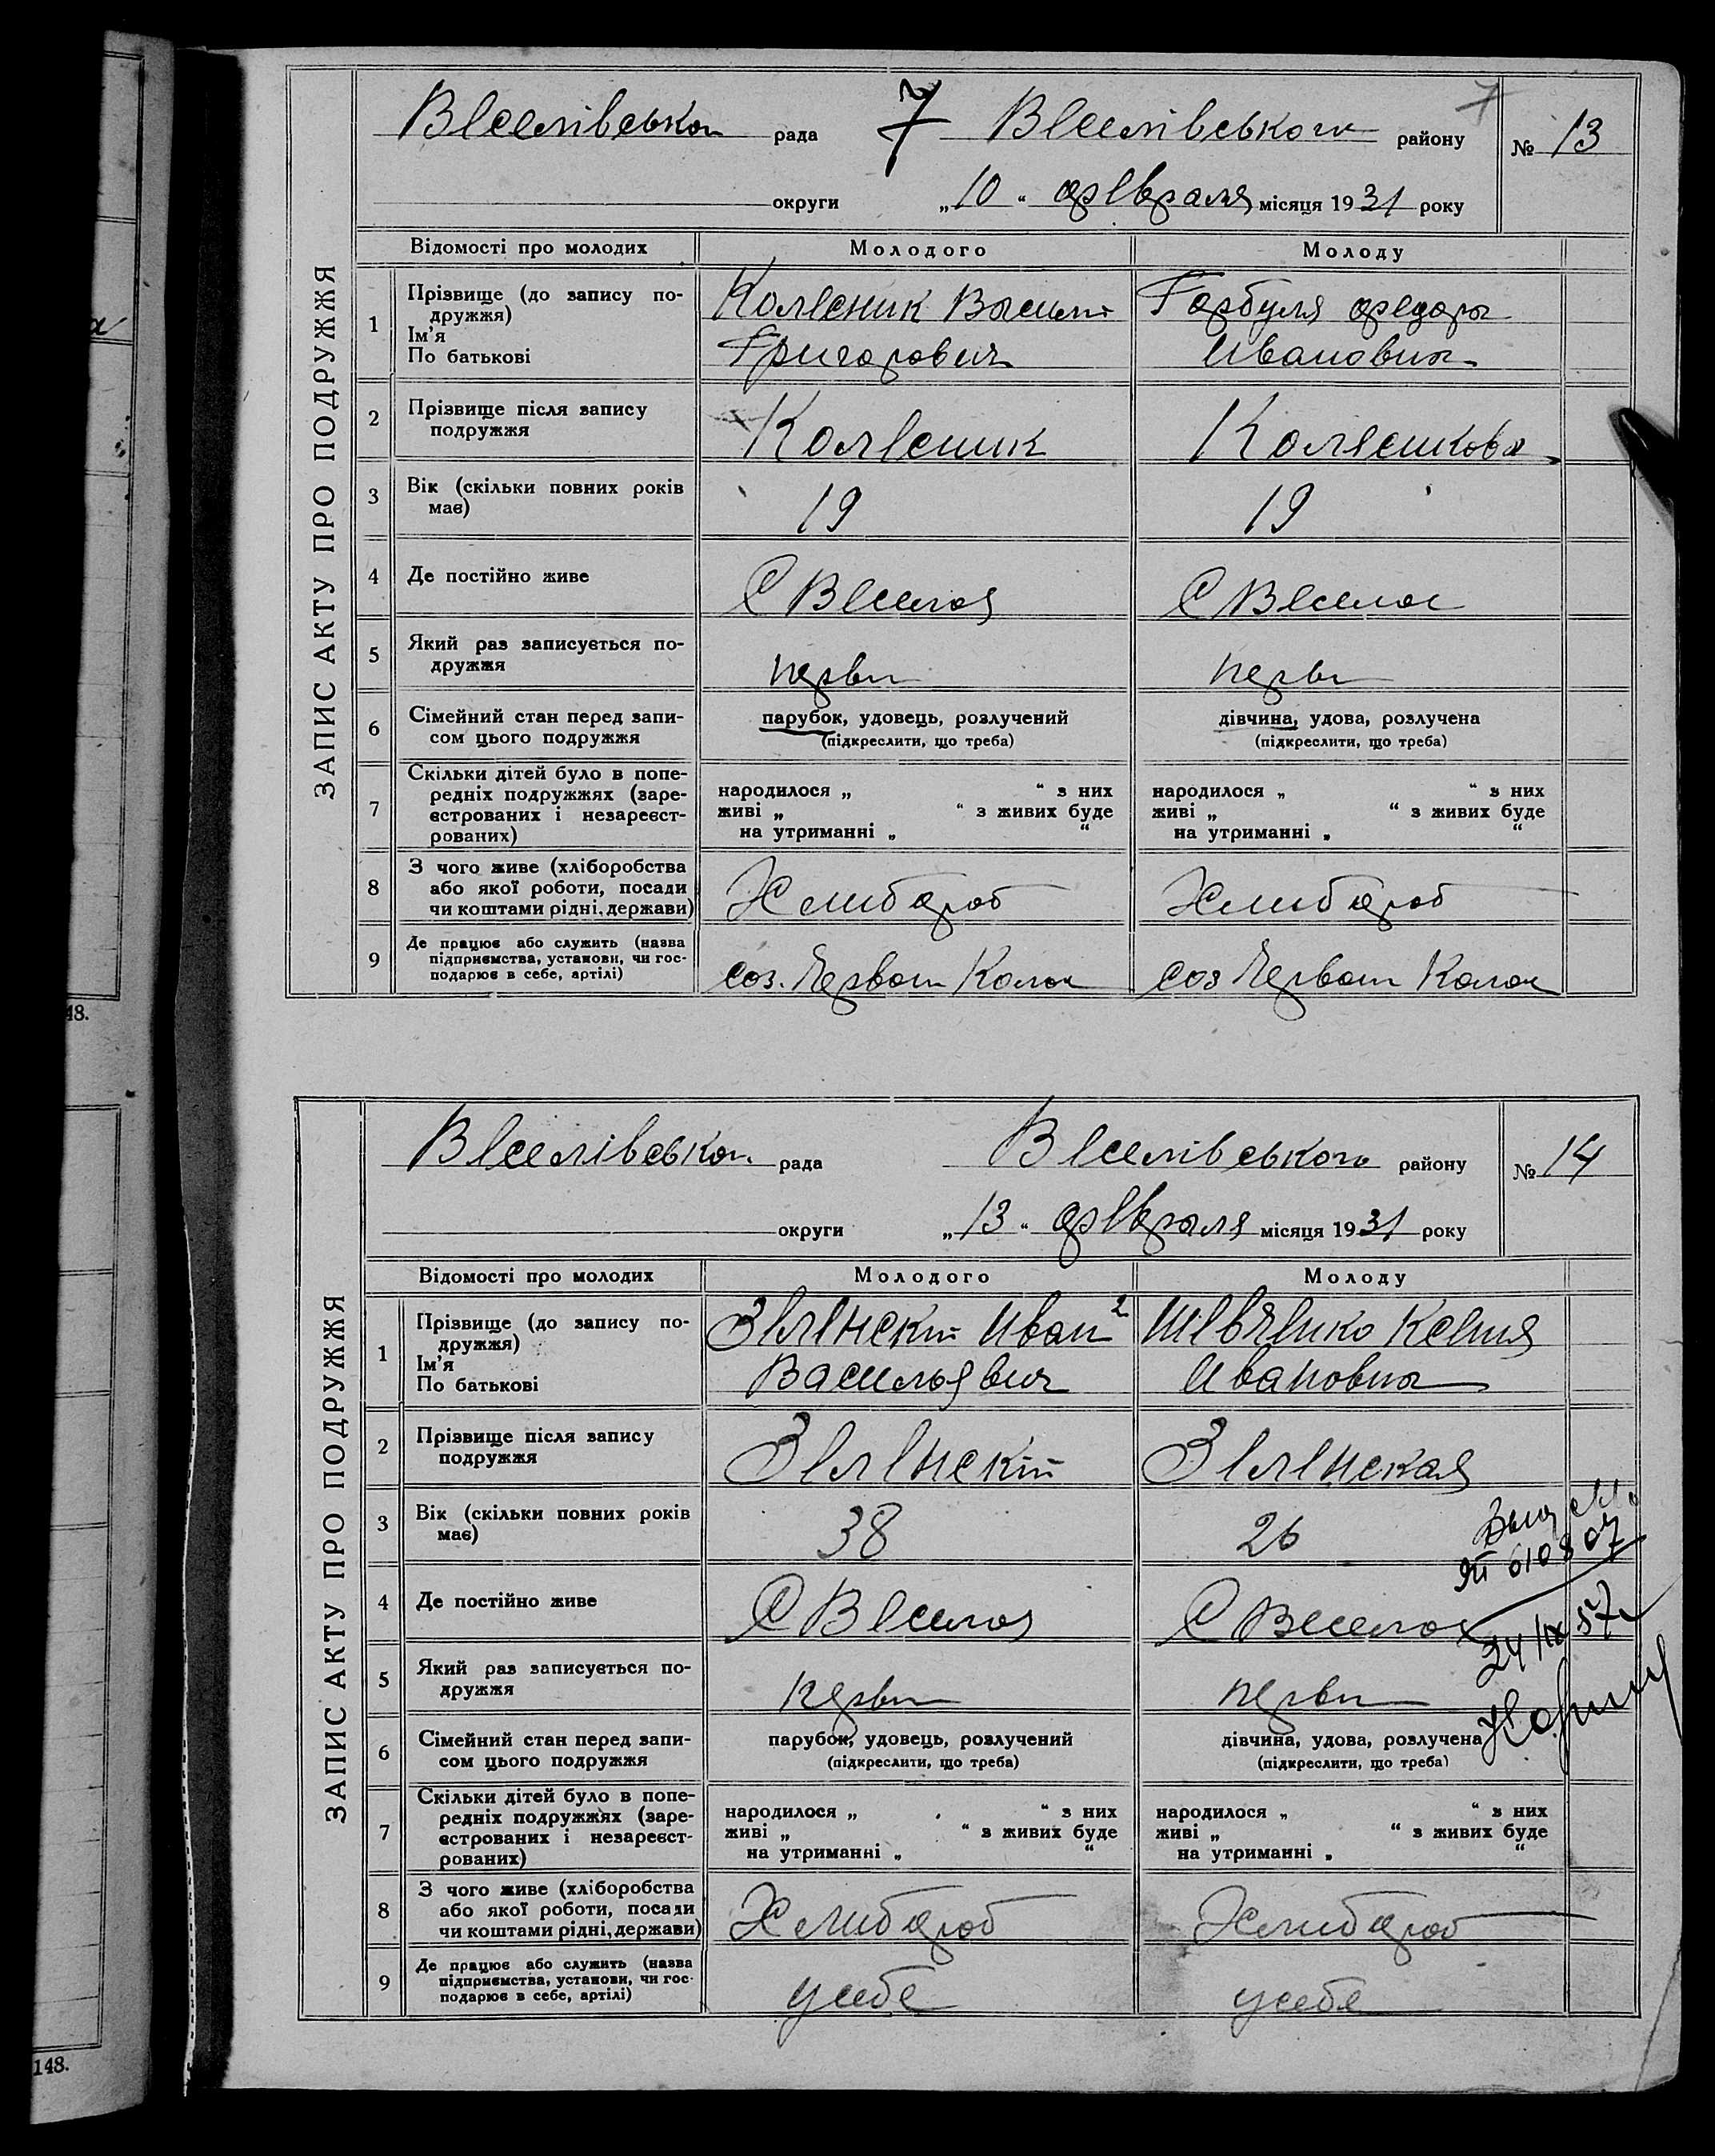 ЗАПИС АКТУ ПРО ПОДРУЖЖЯ
Веселівської рада 7 Веселівського району 7 № 13
округи „10“ февраля місяця 1931 року
Відомості про молодих Молодого Молоду
1 Прізвище (до запису по-
дружжя)
Ім'я
По батькові
Колесник Василь
Григорович
Гарбуля Федора
Ивановна
2 Прізвище після запису
подружжя
Колесник Колесникова
3 Вік (скільки повних років
має)
19 19
4 Де постійно живе С Веселоя С Веселое
5 Який раз записується по-
дружжя
первы первы
6 Сімейний стан перед запи-
сом цього подружжя
парубок, удовець, розлучений
(підкреслити, що треба)
дівчина, удова, розлучена
(підкреслити, що треба)
7 Скільки дітей було в попе-
редніх подружжях (заре-
єстрованих і незареєст-
рованих)
народилося „ “ з них
живі „ “ з живих буде
на утриманні „ “
народилося „ “ з них
живі „ “ з живих буде
на утриманні „ “
8 З чого живе (хліборобства
або якої роботи, посади
чи коштами рідні, держави)
Хлибороб Хлибороб
9 Де працює або служить (назва
підприємства, установи, чи гос-
подарює в себе, артілі)
соз. Червоный Колос соз Червоный Колос
48.
ЗАПИС АКТУ ПРО ПОДРУЖЖЯ
Веселівської рада Веселівського району № 14
округи „13“ февраля місяця 1931 року
Відомості про молодих Молодого Молоду
1 Прізвище (до запису по-
дружжя)
Ім'я
По батькові
Зеленский Иван 2
Васильевич
Шевченко Ксения
Ивановна
2 Прізвище після запису
подружжя
Зеленский Зеленская
3 Вік (скільки повних років
має)
38 26
4 Де постійно живе С Веселоя С Веселое
5 Який раз записується по-
дружжя
первы первы
6 Сімейний стан перед запи-
сом цього подружжя
парубок, удовець, розлучений
(підкреслити, що треба)
дівчина, удова, розлучена
(підкреслити, що треба)
7 Скільки дітей було в попе-
редніх подружжях (заре-
єстрованих і незареєст-
рованих)
народилося „ “ з них
живі „ “ з живих буде
на утриманні „ “
народилося „ “ з них
живі „ “ з живих буде
на утриманні „ “
8 З чого живе (хліборобства
або якої роботи, посади
чи коштами рідні, держави)
Хлибороб Хлибороб
9 Де працює або служить (назва
підприємства, установи, чи гос-
подарює в себе, артілі)
усебе усебя
610807
24/IX 57
148.